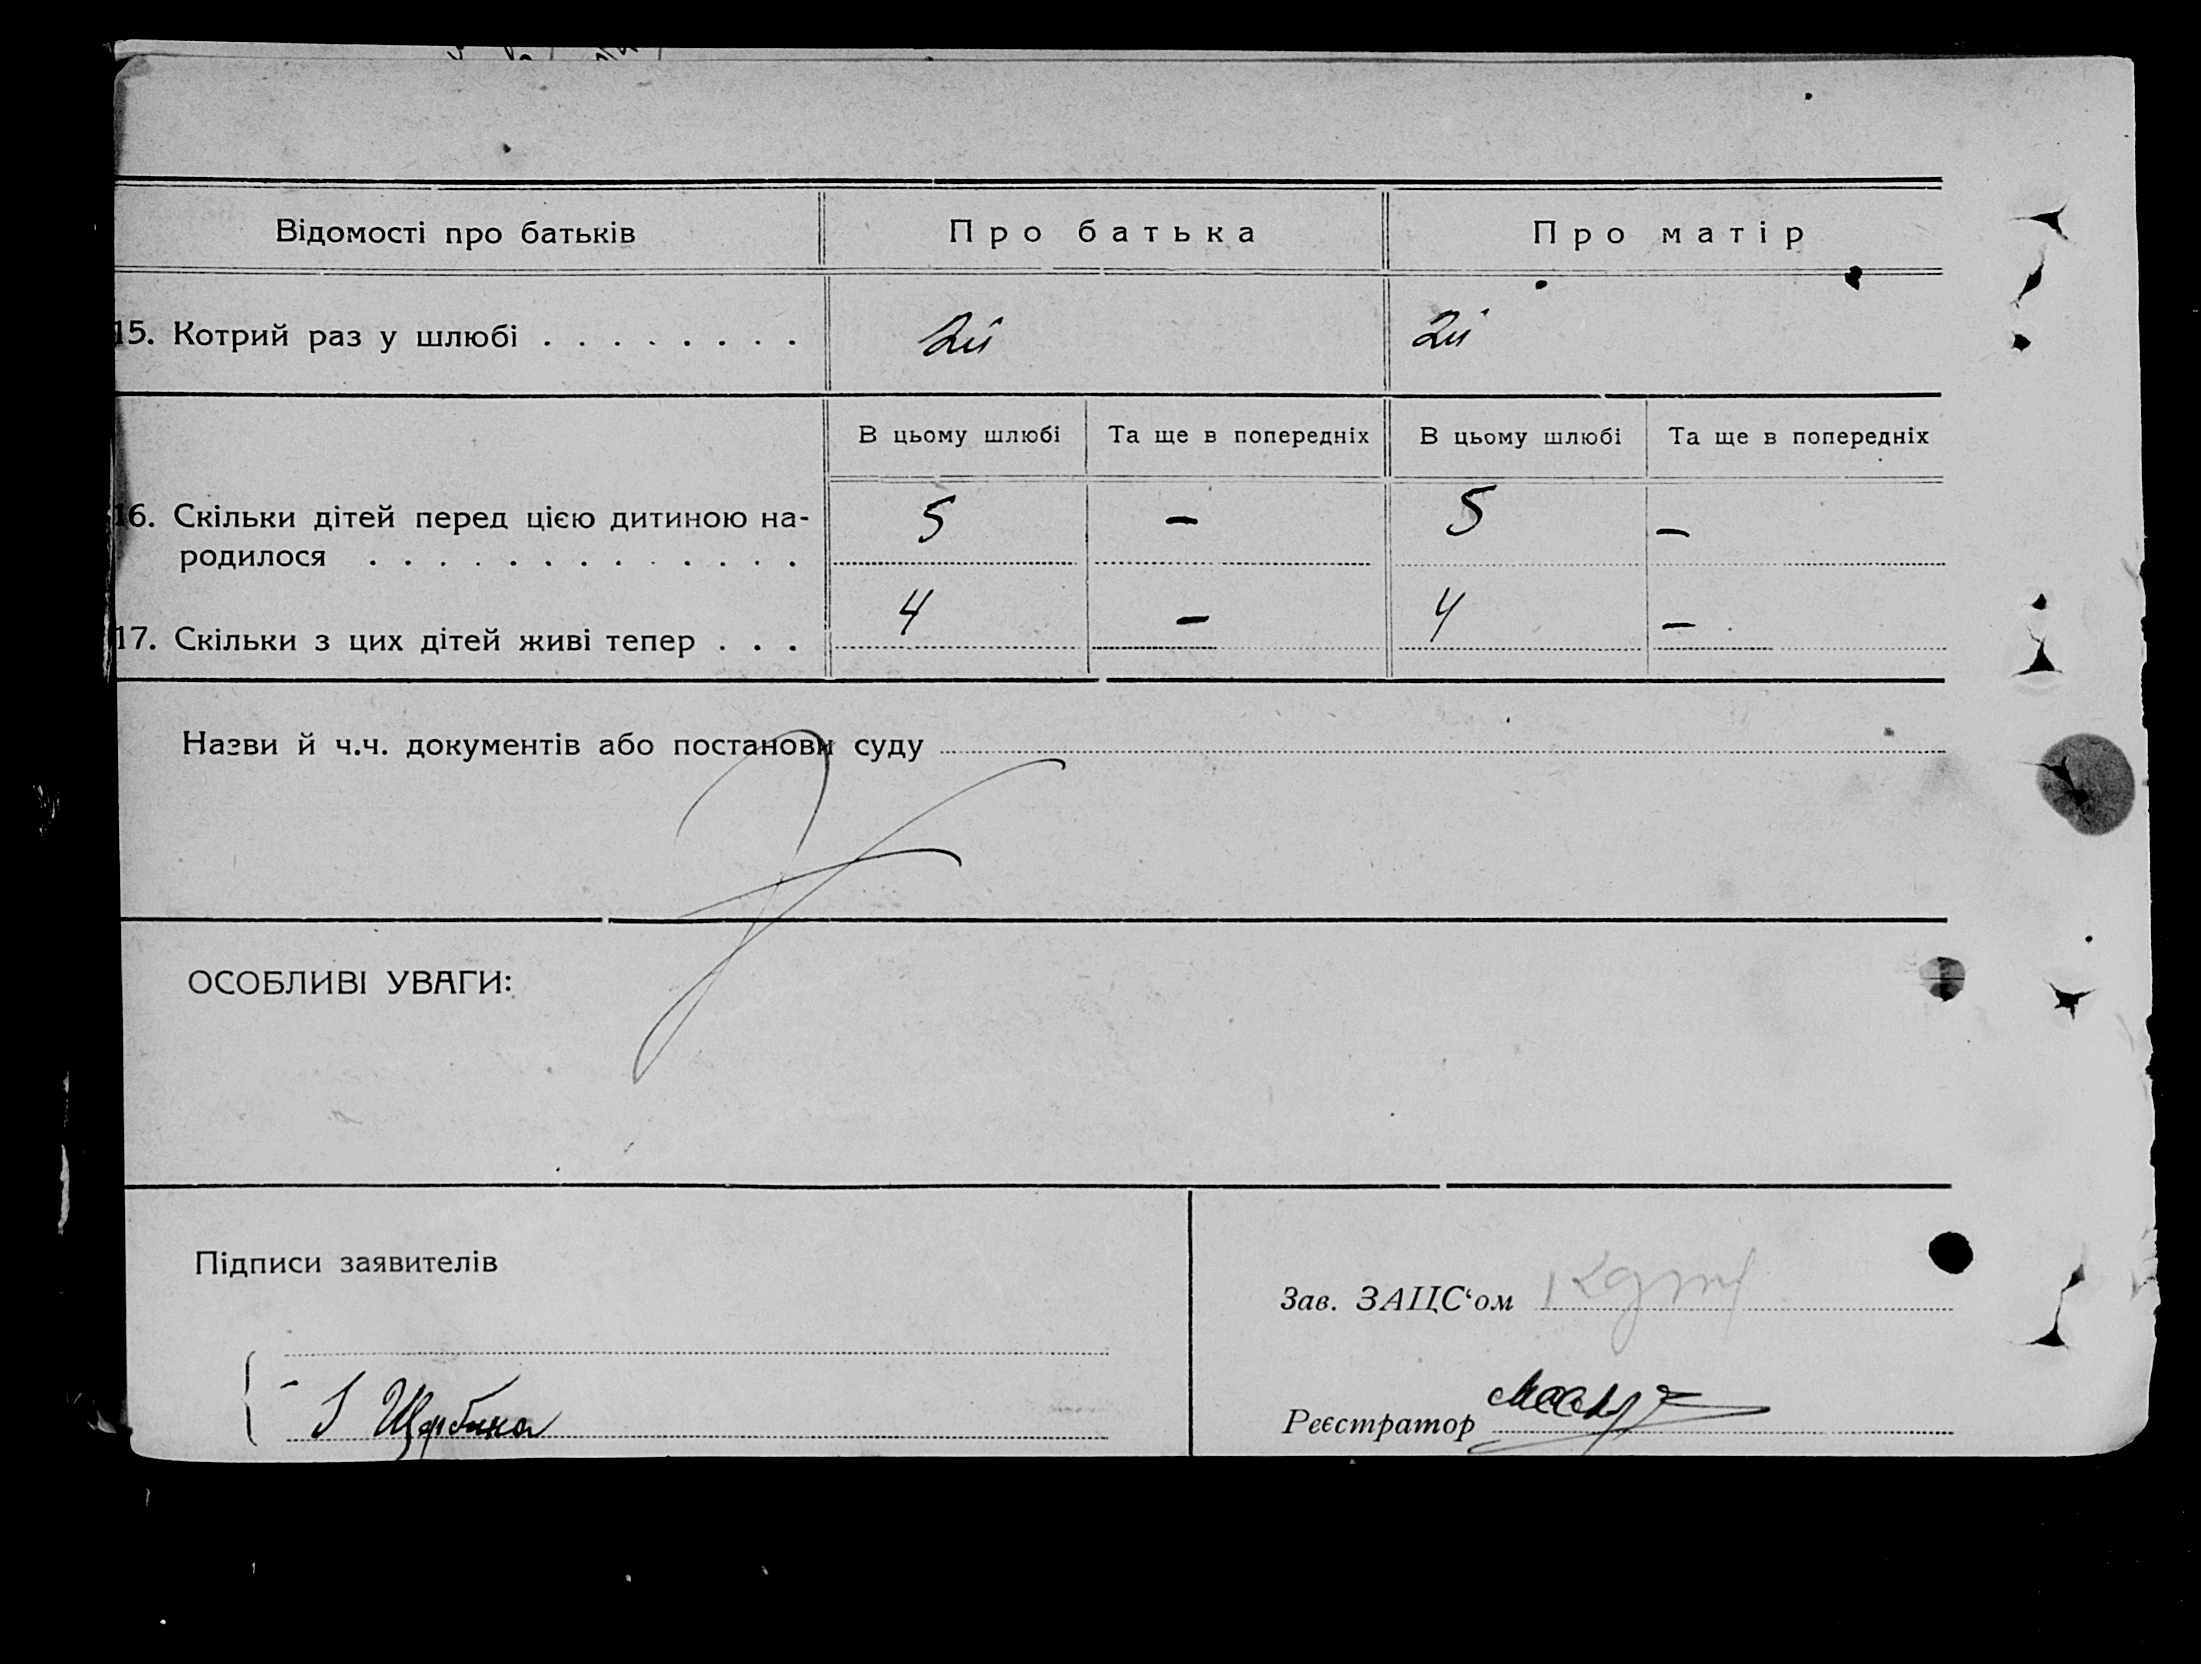 Відомості про батьків Про батька Про матір
15. Котрий раз у шлюбі . . . . . . . . 2й 2й
В цьому шлюбі Та ще в попередніх В цьому шлюбі Та ще в попередніх
16. Скільки дітей перед цією дитиною на-
родилося . . . . . . . . . . . . 5 – 5 –
17. Скільки з цих дітей живі тепер . . . 4 – 4 –
Назви й ч.ч. документів або постанови суду
ОСОБЛИВІ УВАГИ:
Підписи заявителів
Зав. ЗАЦС‘ом
Щербина
Реєстратор